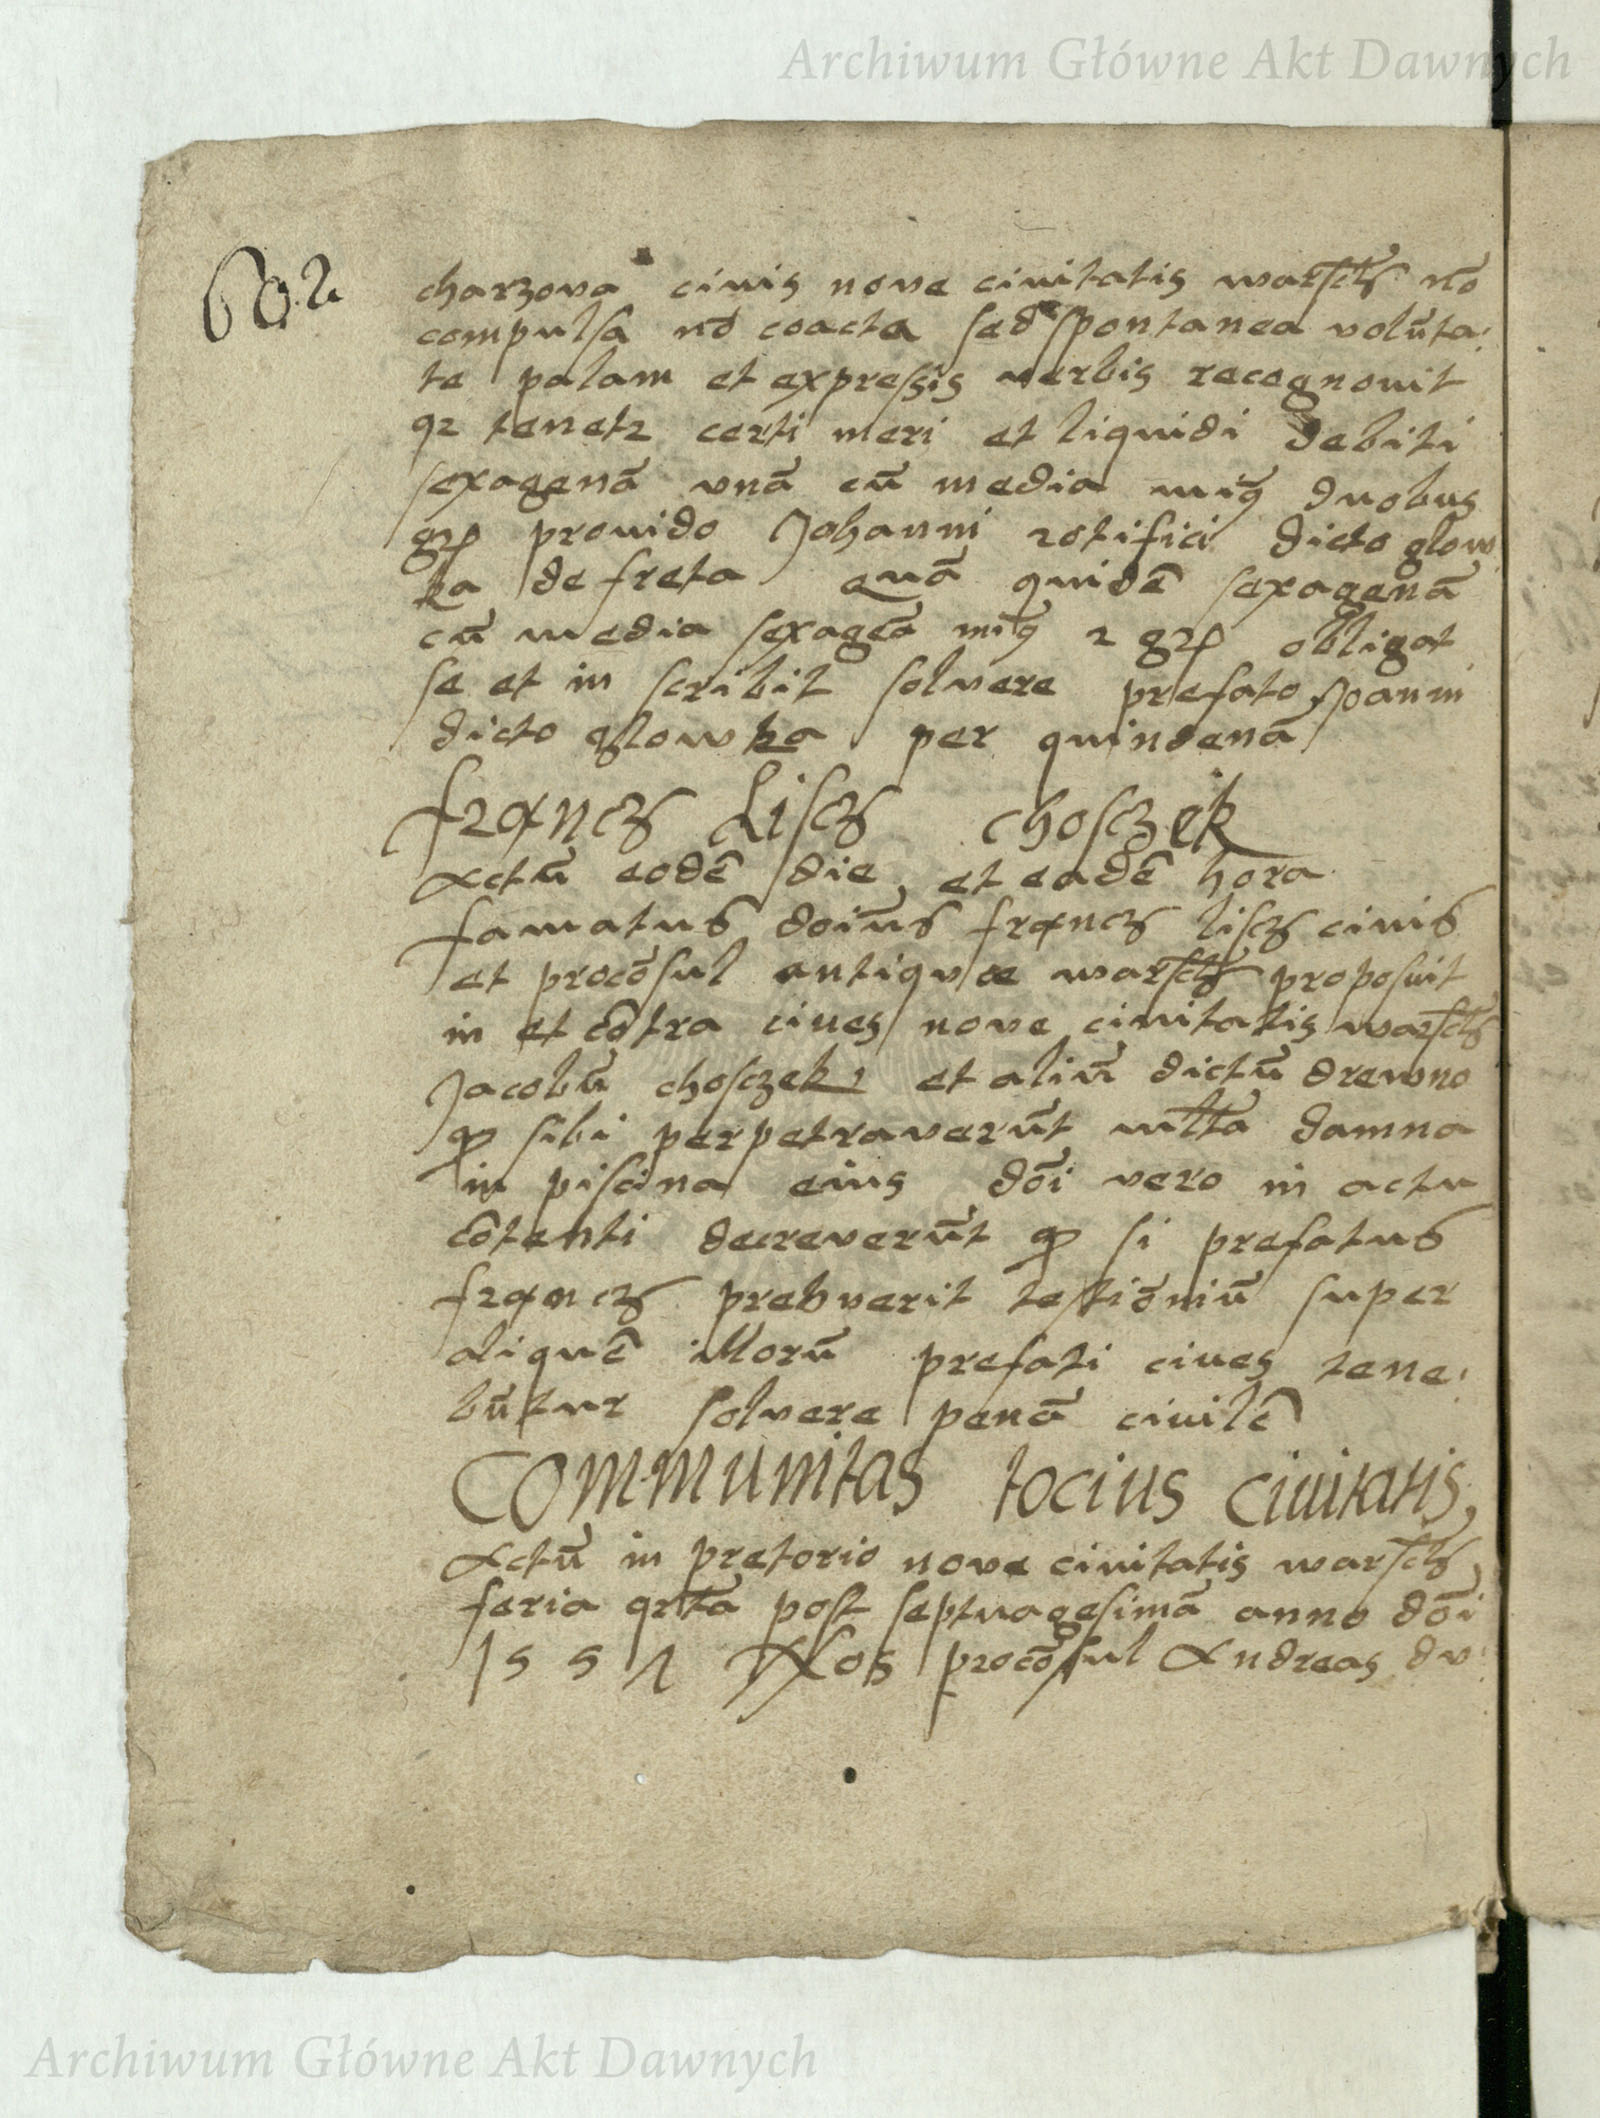 Archiwum Główne Akt Dawnych
602
charzova civis nove civitatis warsch nō
compulsa nō coacta sed spontanea volūta
te palam et expressis verbis recognovit
q2 tenet2 certi meri et liquidi debiti
sexagenā vnā cū media mi9 duobus
gr provido Johanni rotifici dicto glow
ka de freta quā quidē sexagenā
cū media sexagēā mi9 2 gr obligat
se et in scribit solvere prefato Joanni
dicto glowka per quindenā
francz Liscz choszczek
Actū eodē die et eadē hora
famatus doīus francz liscz civis
et procōsul antiquae warsch proposuit
in et cōtra cives nove civitatis warsch
Jacobū choszczek et aliū dictū drewno
q sibi perpetraverūt mlta damna
in piscina eius dōi vero in actu
cōtenti decreverūt q si prefatus
francz prebuerit testiōniū super
aliquē illorū prefati cives tene
būtur solvere penā civilē
Communitas tocius civitatis
Actū in pretorio nove civitatis warsch
feria qrta post septuagesimā anno dōi
1551 Nos procōsul Andreas du
Archiwum Główne Akt Dawnych